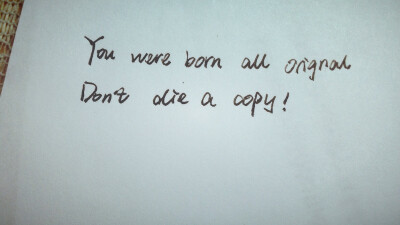 You were born all orignal
Don't die a copy!